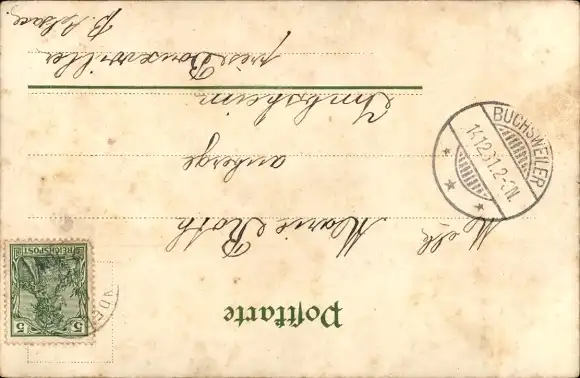 Postkarte
Melle Marie Roth
auberge
Imbsheim
près Bouxwiller
B. Alsace.
5 REICHSPOST 5
BUCHSWEILER
14.12.01. 2-3N.